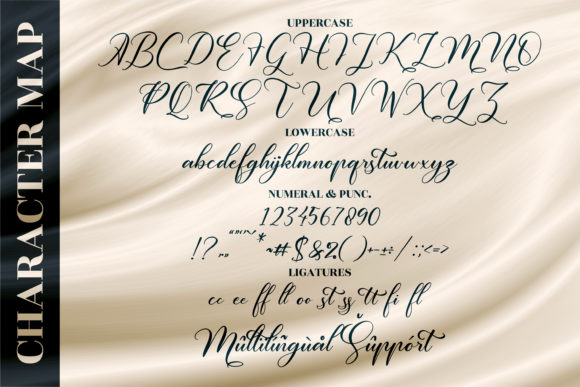 CHARACTER MAP
UPPERCASE
ABCDEFGHIJKLMNO
PQRSTUVWXYZ
LOWERCASE
abcdefghijklmnopqrstuvwxyz
NUMERAL & PUNC.
1234567890
!? „ "“”'‘’* ~#$&%() +-±÷/:;<=>
LIGATURES
cc ee ff ll oo st ss tt fi fl
Mûltilíñgùål Šûppórt